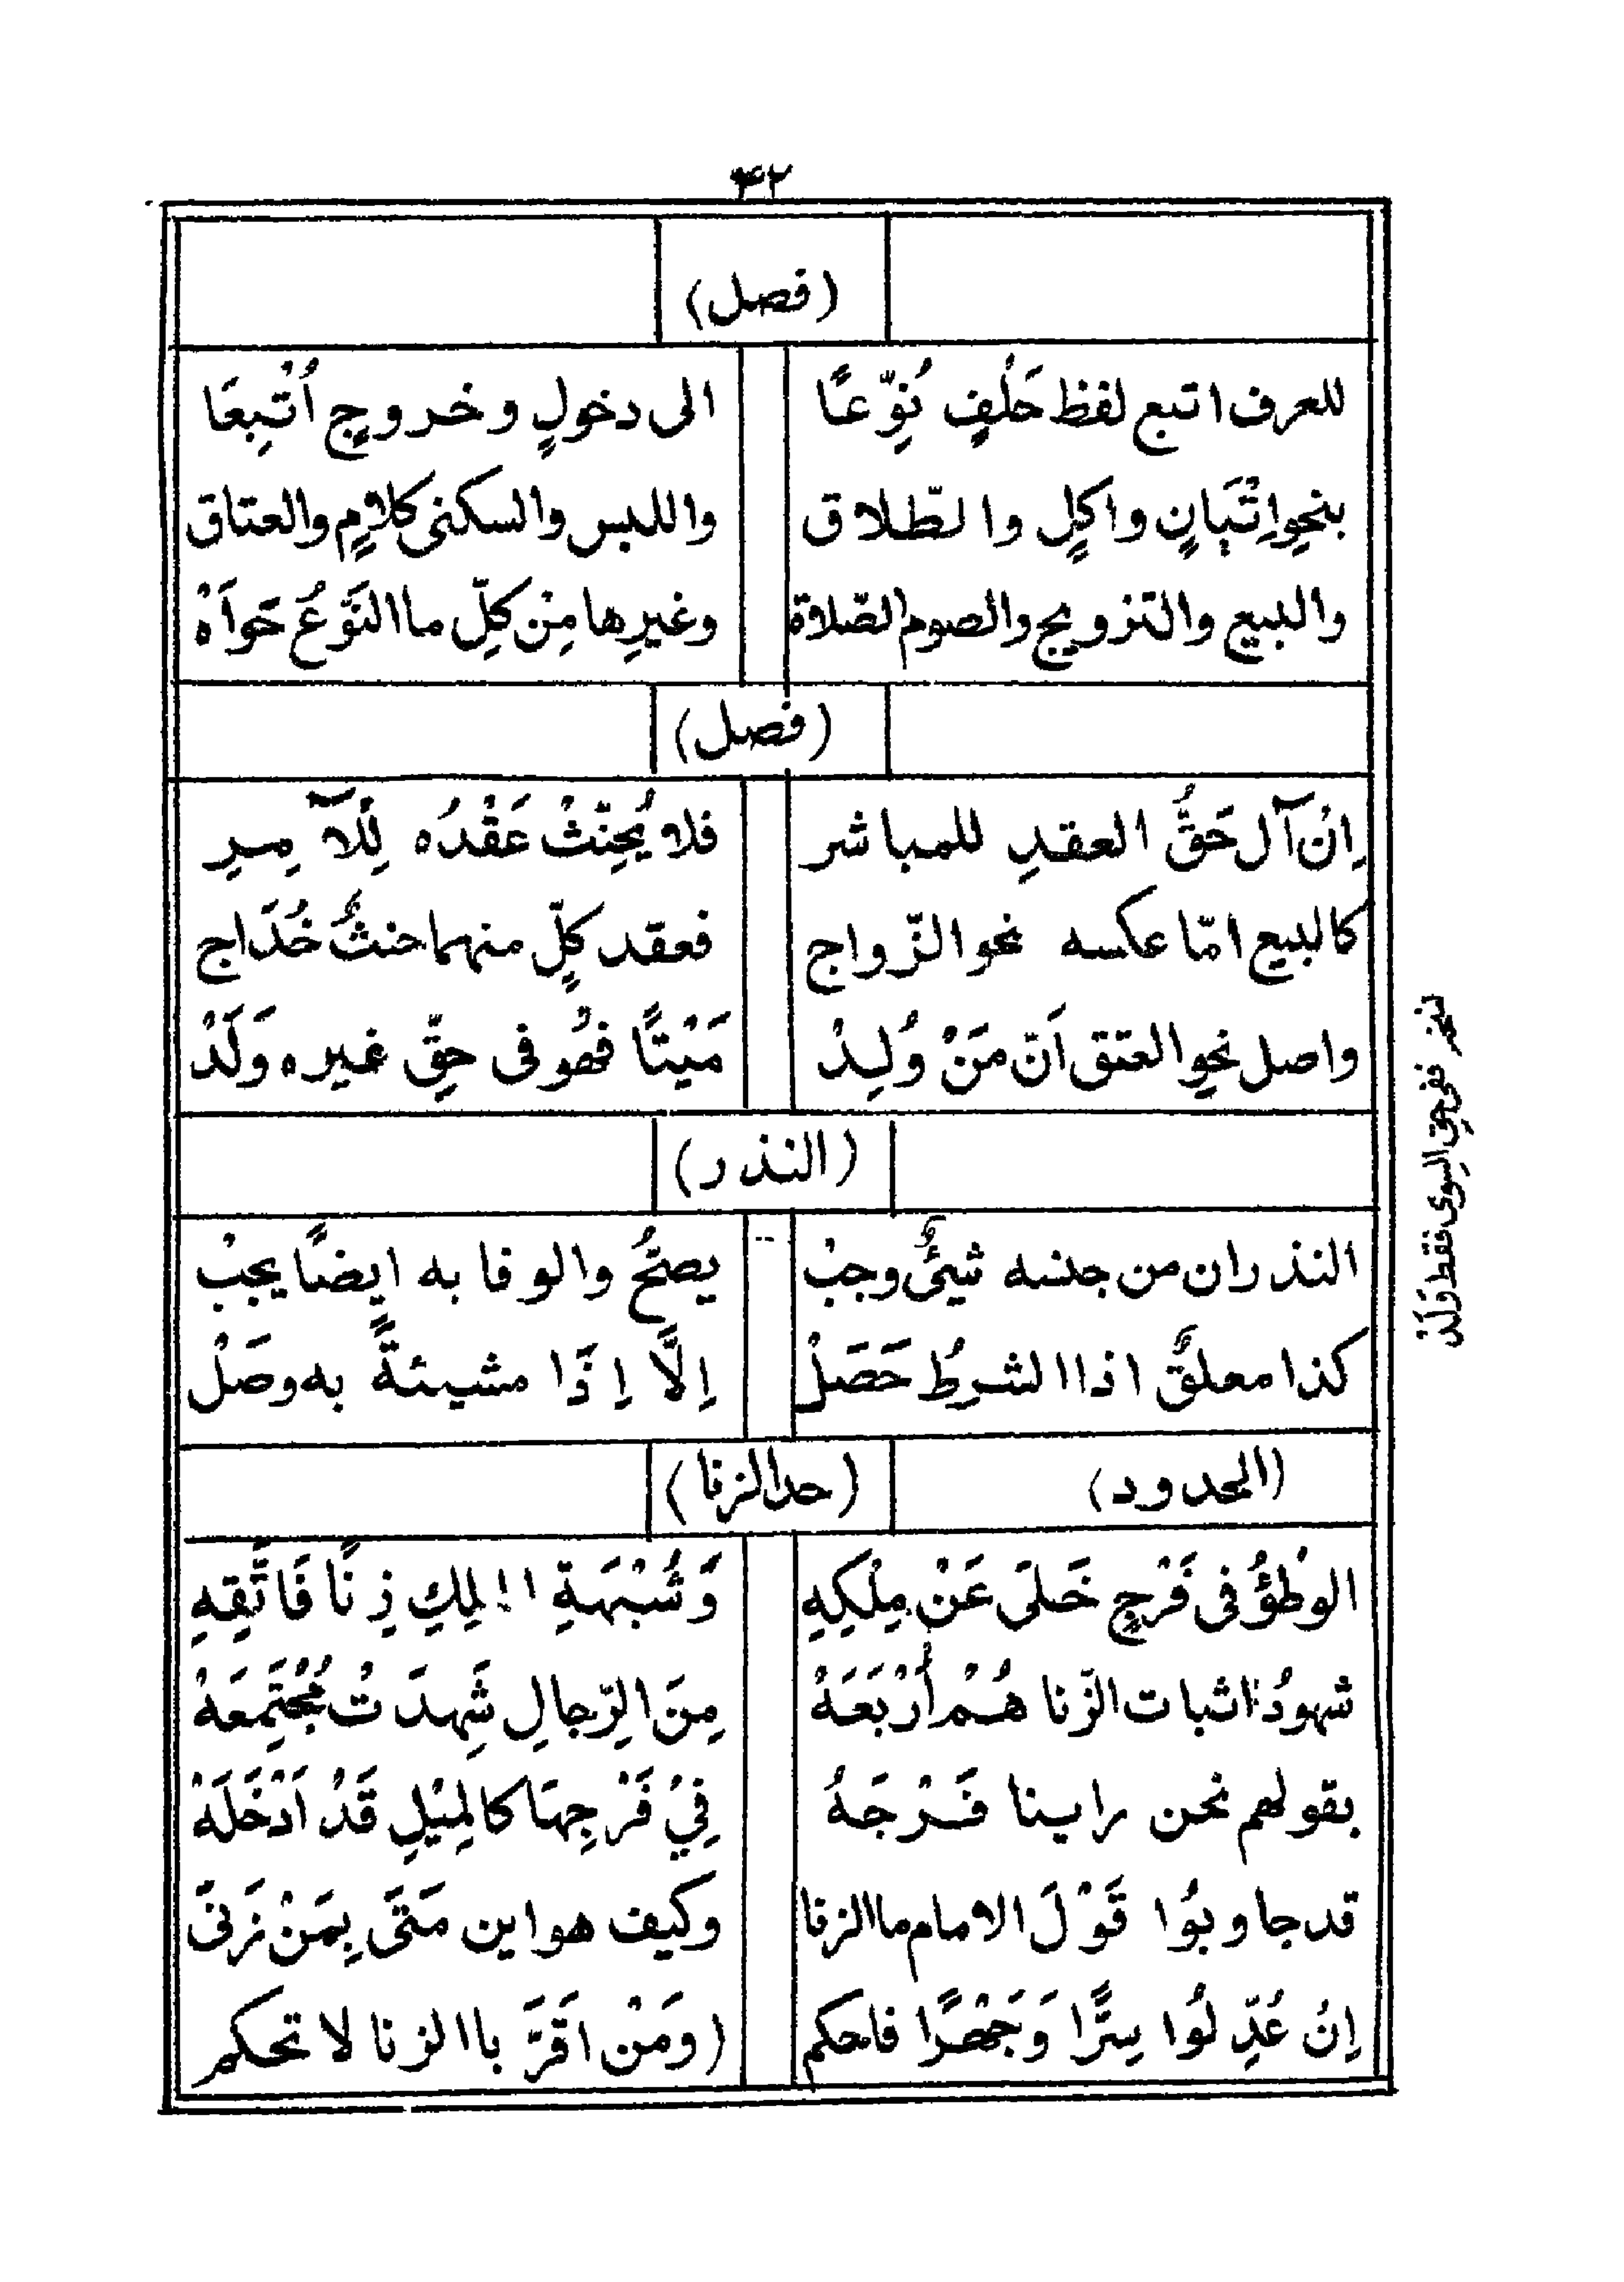 ۴۲
(فصل)
للعرف اتبع لفظ حَلْفٍ نُوِّعَا الى دخولٍ وخروجٍ اُتْبِعَا
بنحوِ اِتْيَانٍ واكلٍ والطّلاق واللبس والسكنى كلامٍ والعتاق
والبيع والتزويج والصوم الصّلاة وغيرِها مِنْ كلِّ ما النَّوْعُ حَوَاهْ
(فصل)
اِنْ آل حَقُّ العقدِ للمباشر فلا يُحَنِّثْ عَقْدُه لِلْآمِرِ
كالبيع امّا عكسه نحو الزّواج فعقد كلٍّ منهما حنثٌ خُدَاج
واصل نحوِ العتق اَنّ مَنْ وُلِدْ مَيْتًا فهُو فى حقِّ غيره وَلَدْ
نسخه ففى حقِ السِوى فقط وَلَدْ
(النذر)
النذر ان من جنسه شيئٌ وجبْ يصحُّ والوفا به ايضًا يجبْ
كذا معلقٌ اذا الشرطُ حَصَلْ اِلَّا اِذَا مشيئةً به وصَلْ
(الحدود) (حد الزنا)
الوَطْؤُ فى فَرْجٍ خَلَى عَنْ مِلْكِهِ وَشُبْهَةِ الْمِلكِ زِنًا فَاتَّقِهِ
شهودُ اثبات الزّنا هُمْ أَرْبَعَهْ مِنَ الرِّجالِ شَهِدَتْ مُجْتَمِعَهْ
بقولهم نحن راينا فَرْجَهُ فِيْ فَرْجِهَا كالمِيْلِ قَدْ اَدْخَلَهْ
قد جاوبُوا قَوْلَ الامام ما الزنا وكيف هو اين مَتَى بِمَنْ زَنَى
اِنْ عُدِّلُوا سِرًّا وَجَهْرًا فاحكم (ومَنْ اَقَرَّ باالزنا لا تحكم